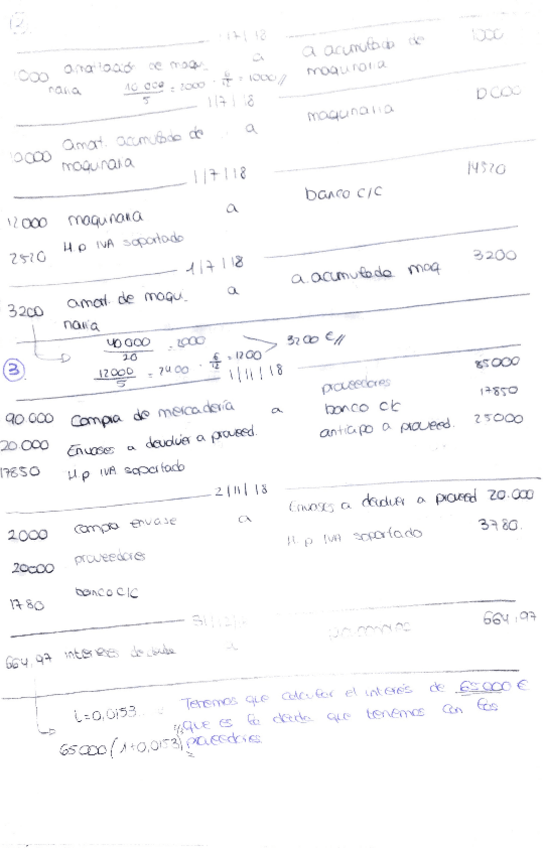 2.
1/7/18
1000 amortización de maqu. a a acumulada de 1000
naria maquinaria
10 000 / 5 = 2000 · 6/12 = 1000//
1/7/18
10000 Amort. acumulada de a maquinaria 10000
maquinaria
1/7/18
12000 maquinaria a banco c/c 14520
2520 H p IVA soportado
1/7/18
3200 amort. de maqui. a a. acumulada maq 3200
naria
40000 / 20 = 2000
12000 / 5 = 2400 · 6/12 = 1200 3200 €//
3.
1/11/18
90.000 Compra de mercadería a proveedores 85000
20.000 Envases a devolver a proveed. banco c/c 17850
17850 H p IVA soportado anticipo a proveed. 25000
2/11/18
2000 compra envase a Envases a devolver a proveed 20.000
20000 proveedores H p IVA soportado 3780.
1780 banco c/c
664,97 intereses de 664,97
i=0,0153. Tenemos que calcular el interés de 65000 €
65000(1+0,0153) que es la deuda que tenemos con los
proveedores